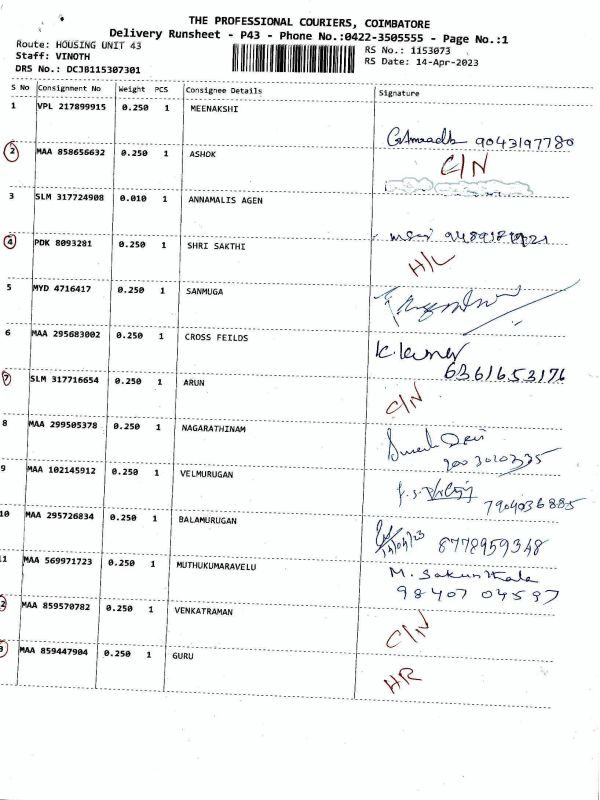 THE PROFESSIONAL COURIERS, COIMBATORE
Delivery Runsheet - P43 - Phone No.:0422-3505555 - Page No.:1
Route: HOUSING UNIT 43
RS No.: 1153073
Staff: VINOTH
RS Date: 14-Apr-2023
DRS No.: DCJB115307301
S No Consignment No Weight PCS Consignee Details Signature
1 VPL 217899915 0.250 1 MEENAKSHI
9043197780
2 MAA 858656632 0.250 1 ASHOK
C/N
3 SLM 317724908 0.010 1 ANNAMALIS AGEN
4 PDK 8093281 0.250 1 SHRI SAKTHI
H/L
5 MYD 4716417 0.250 1 SANMUGA
6 MAA 295683002 0.250 1 CROSS FEILDS
6361653176
7 SLM 317716654 0.250 1 ARUN
C/N
8 MAA 299505378 0.250 1 NAGARATHINAM
9 MAA 102145912 0.250 1 VELMURUGAN
7904036885
10 MAA 295726834 0.250 1 BALAMURUGAN
14/04/23 8778959348
11 MAA 569971723 0.250 1 MUTHUKUMARAVELU
M. Sakunthala
98407 04597
2 MAA 859570782 0.250 1 VENKATRAMAN
C/N
3 MAA 859447904 0.250 1 GURU
HR